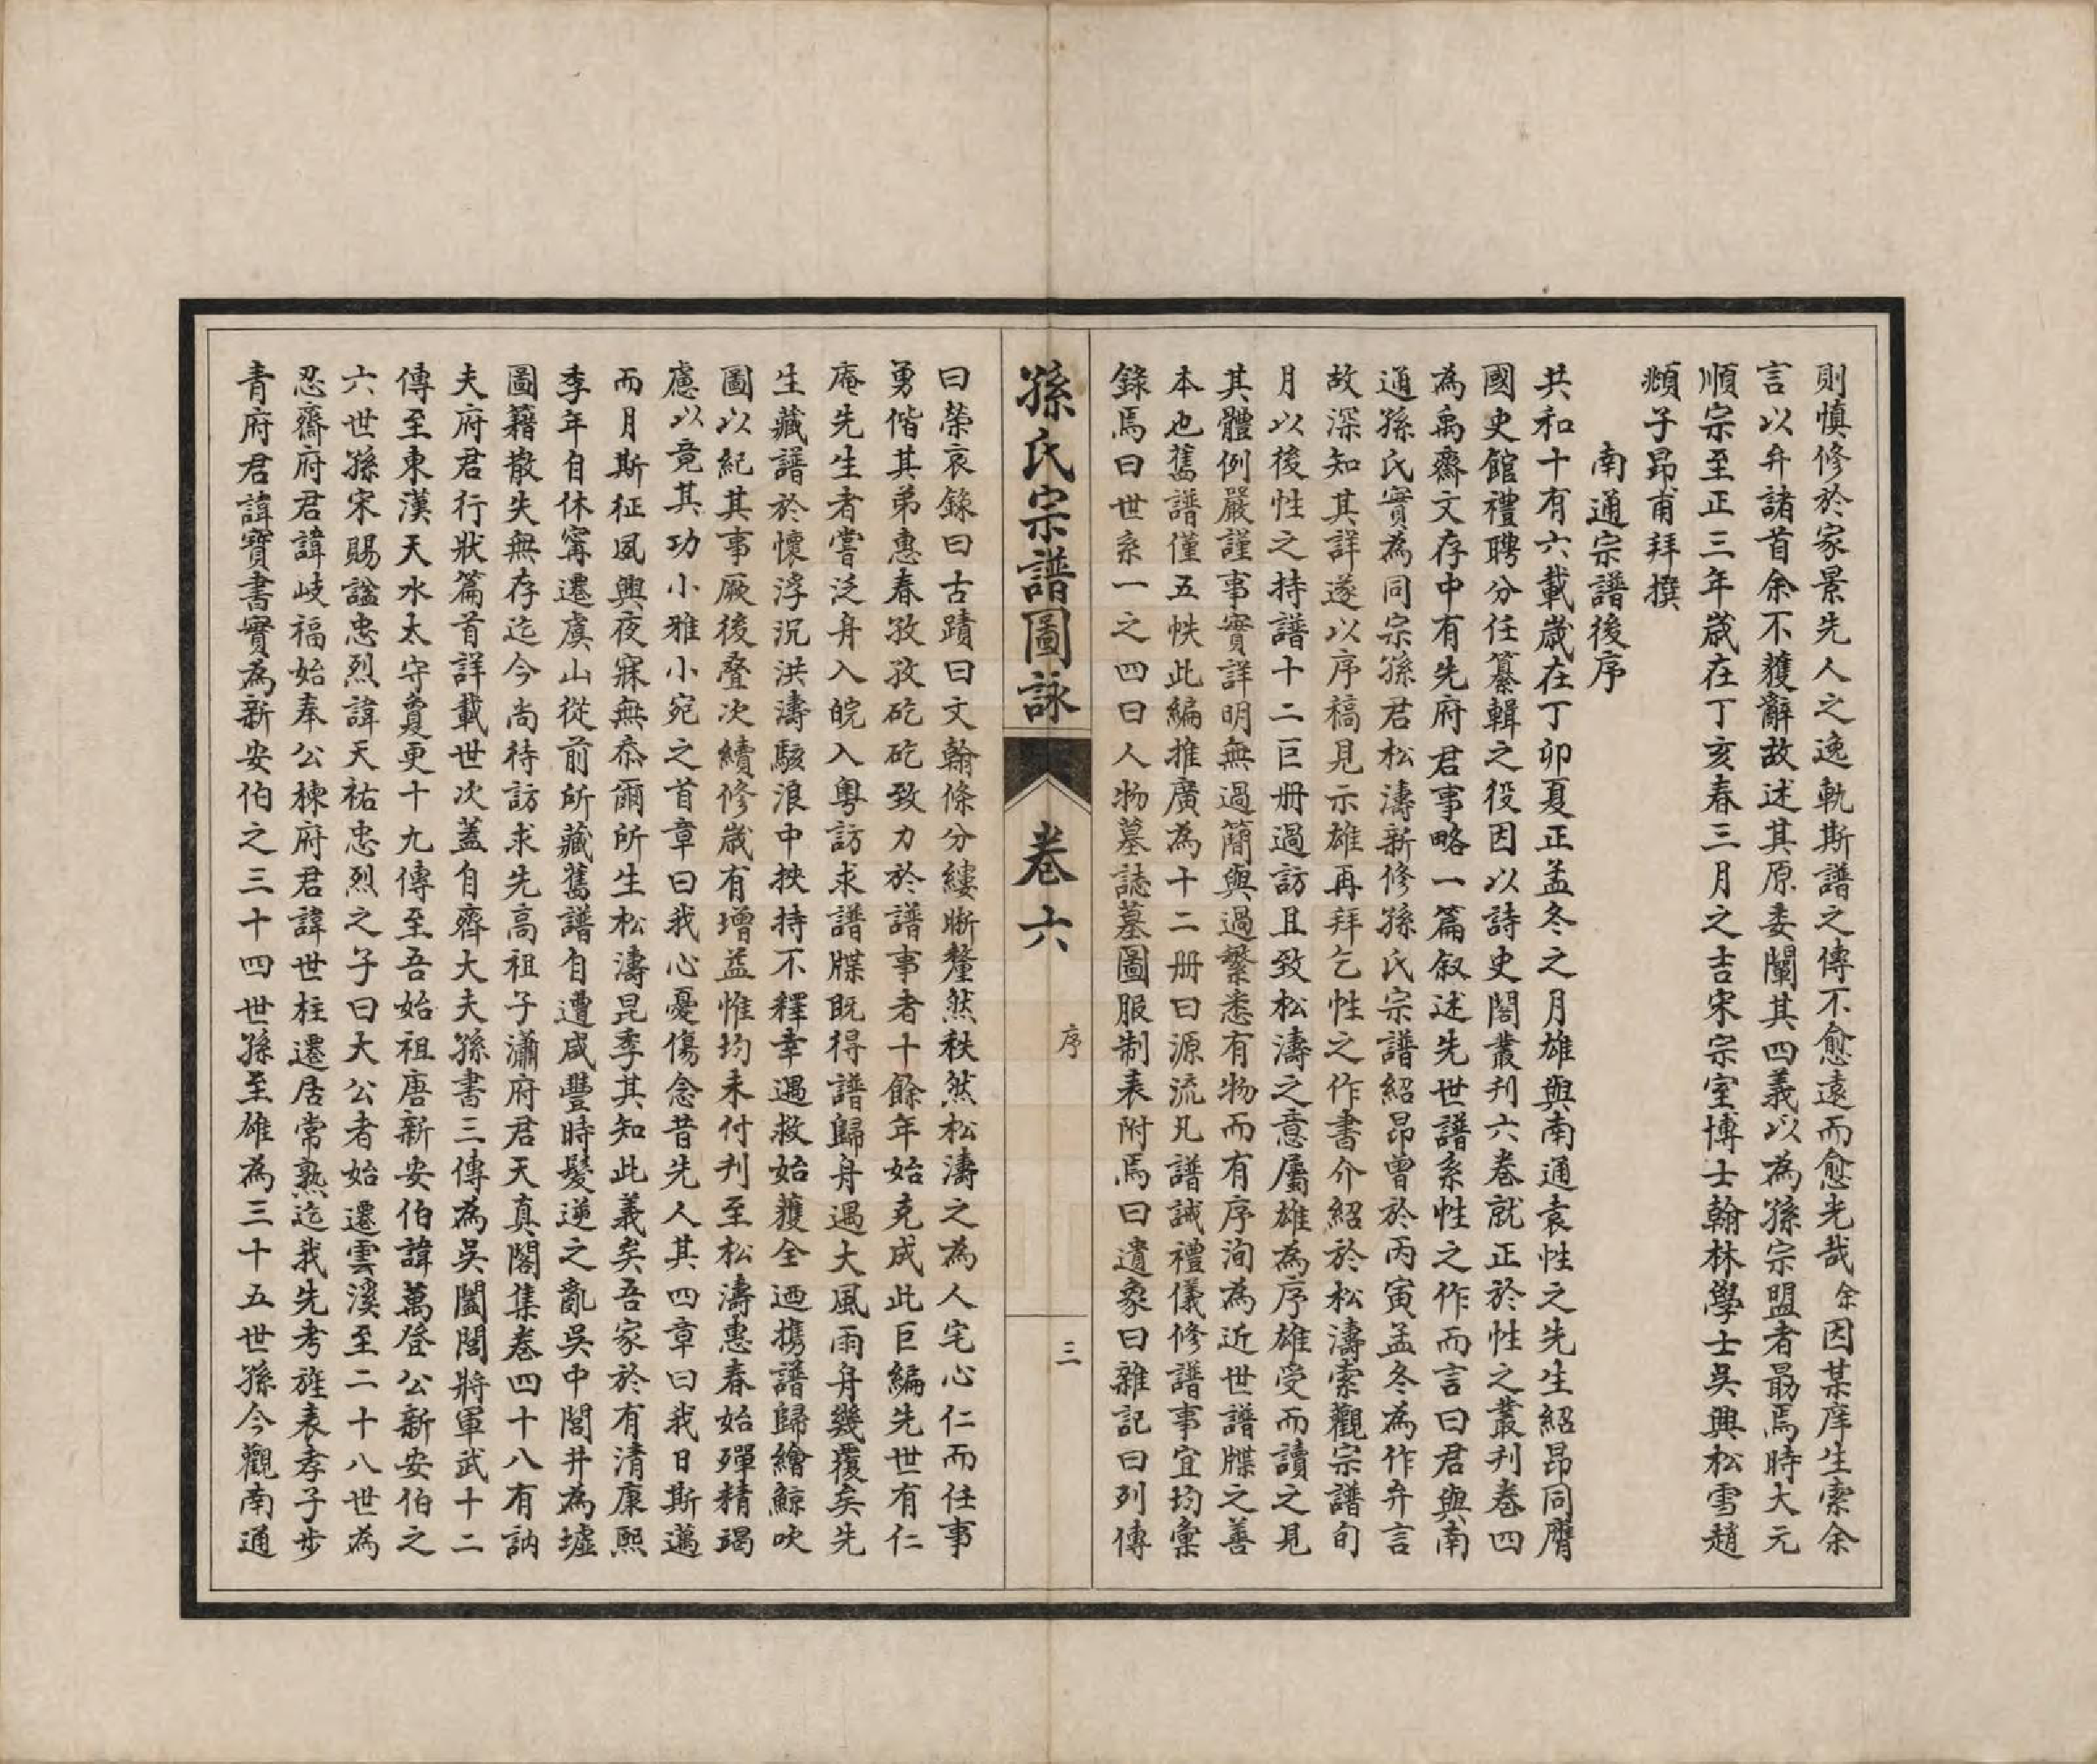 則慎修於家景先人之逸軌斯譜之傳不愈遠而愈光哉余因某庠生索余
言以弁諸首余不獲辭故述其原委闡其四義以為孫宗盟者勗焉時大元
順宗至正三年歲在丁亥春三月之吉宋宗室博士翰林學士吳興松雪趙
頫子昂甫拜撰
南通宗譜後序
共和十有六載歲在丁卯夏正孟冬之月雄與南通袁性之先生紹昂同膺
國史館禮聘分任纂輯之役因以詩史閣叢刊六卷就正於性之叢刊卷四
為禹齋文存中有先府君事略一篇叙述先世譜系性之作而言曰君與南
通孫氏實為同宗孫君松濤新修孫氏宗譜紹昂曾於丙寅孟冬為作弁言
故深知其詳遂以序稿見示雄再拜乞性之作書介紹於松濤索觀宗譜旬
月以後性之持譜十二巨册過訪且致松濤之意屬雄為序雄受而讀之見
其體例嚴謹事實詳明無過簡與過繁悉有物而有序洵為近世譜牒之善
本也舊譜僅五帙此編推廣為十二册曰源流凡譜誡禮儀修譜事宜均彙
錄焉曰世系一之四曰人物墓誌墓圖服制表附焉曰遺象曰雜記曰列傳
孫氏宗譜圖詠 卷六 序 三
曰榮哀錄曰古蹟曰文翰條分縷晰釐然秩然松濤之為人宅心仁而任事
勇偕其弟惠春孜孜矻矻致力於譜事者十餘年始克成此巨編先世有仁
庵先生者嘗泛舟入皖入粵訪求譜牒既得譜歸舟遇大風雨舟幾覆矣先
生藏譜於懷浮沉洪濤駭浪中挾持不釋幸遇救始獲全迺攜譜歸繪鯨吹
圖以紀其事厥後疊次續修歲有增益惟均未付刋至松濤惠春始殫精竭
慮以竟其功小雅小宛之首章曰我心憂傷念昔先人其四章曰我日斯邁
而月斯征夙興夜寐無忝爾所生松濤昆季其知此義矣吾家於有清康熙
季年自休甯遷虞山從前所藏舊譜自遭咸豐時髮逆之亂吳中閭井為墟
圖籍散失無存迄今尚待訪求先高祖子瀟府君天真閣集卷四十八有訥
夫府君行狀篇首詳載世次蓋自齊大夫孫書三傳為吳闔閭將軍武十二
傳至東漢天水太守賁更十九傳至吾始祖唐新安伯諱萬登公新安伯之
六世孫宋賜謚忠烈諱天祐忠烈之子曰大公者始遷雲溪至二十八世為
忍齋府君諱岐福始奉公棟府君諱世柱遷居常熟迄我先考旌表孝子步
青府君諱寶書實為新安伯之三十四世孫至雄為三十五世孫今觀南通